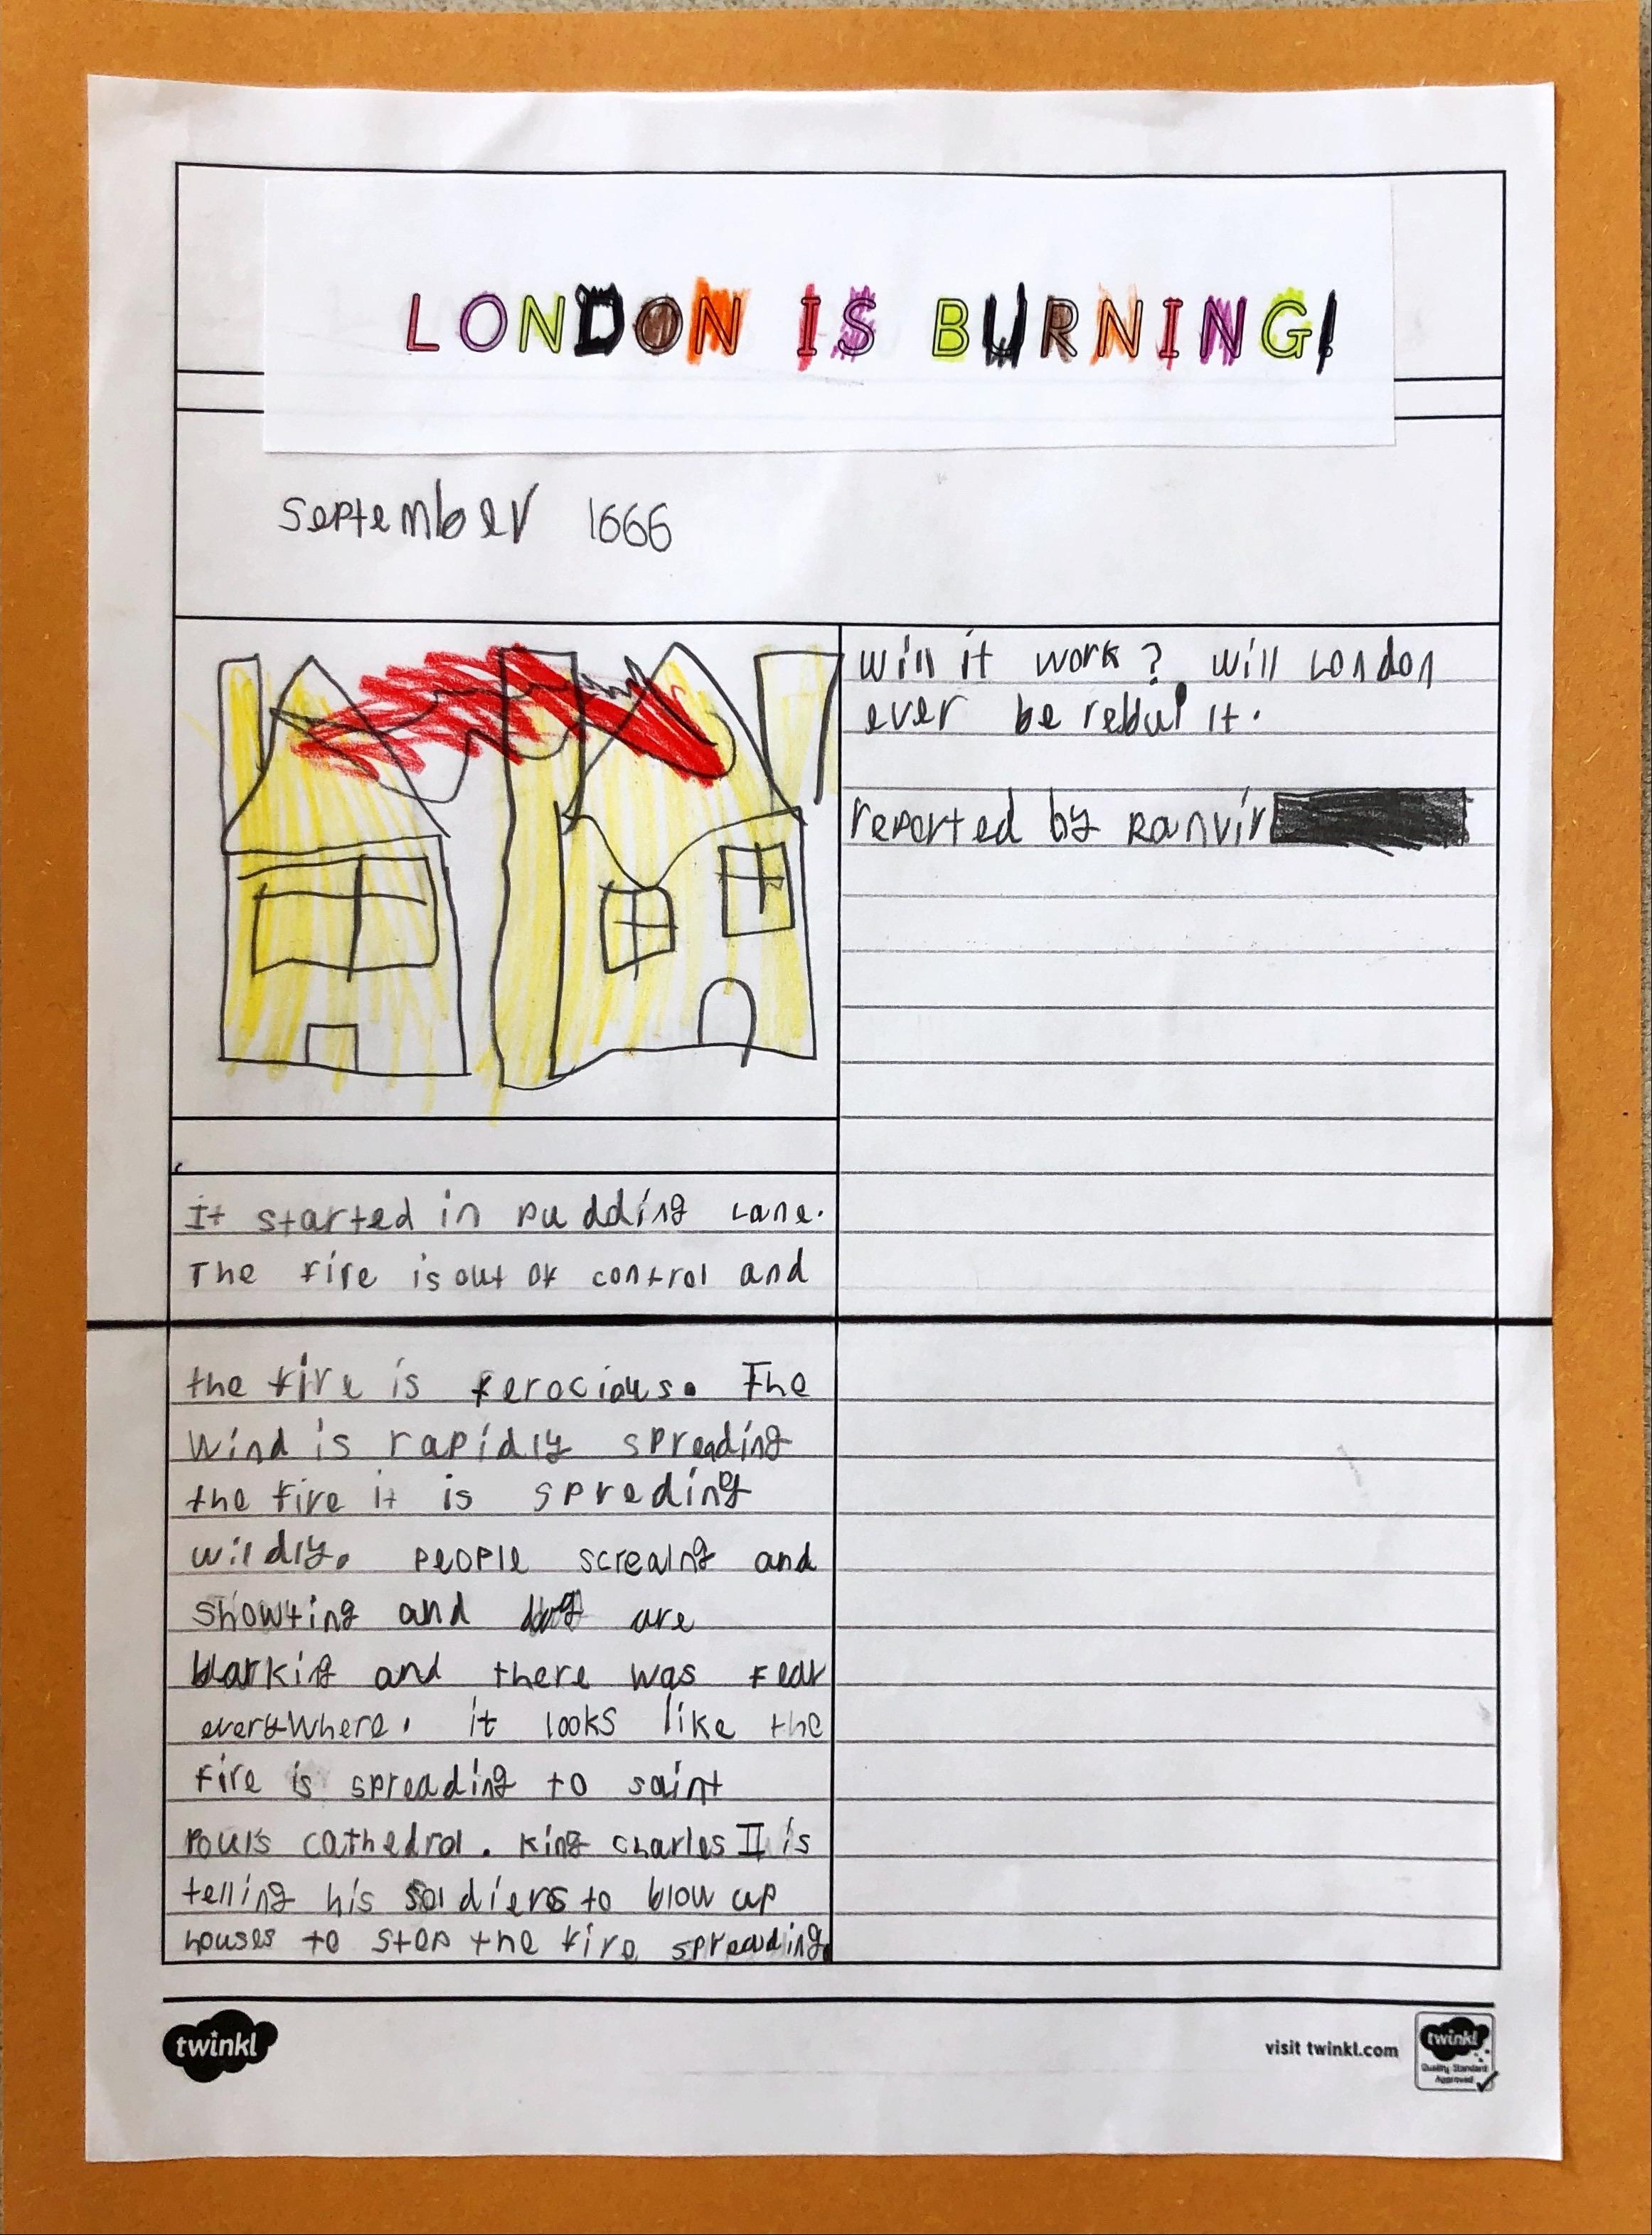 LONDON IS BURNING!
September 1666
It started in pudding Lane.
The fire is out of control and
the fire is ferocious. The
wind is rapidly spreading
the fire it is spreding
wildly. People screaing and
showting and dog are
barking and there was fear
everywhere. it looks like the
fire is spreading to saint
Pouls cathedral. King Charles II is
telling his soldiers to blow up
houses to stop the fire spreading.
will it work? will London
ever be rebuilt.
reported by Ranvir
twinkl
visit twinkl.com
twinkl
Quality Standard
Approved